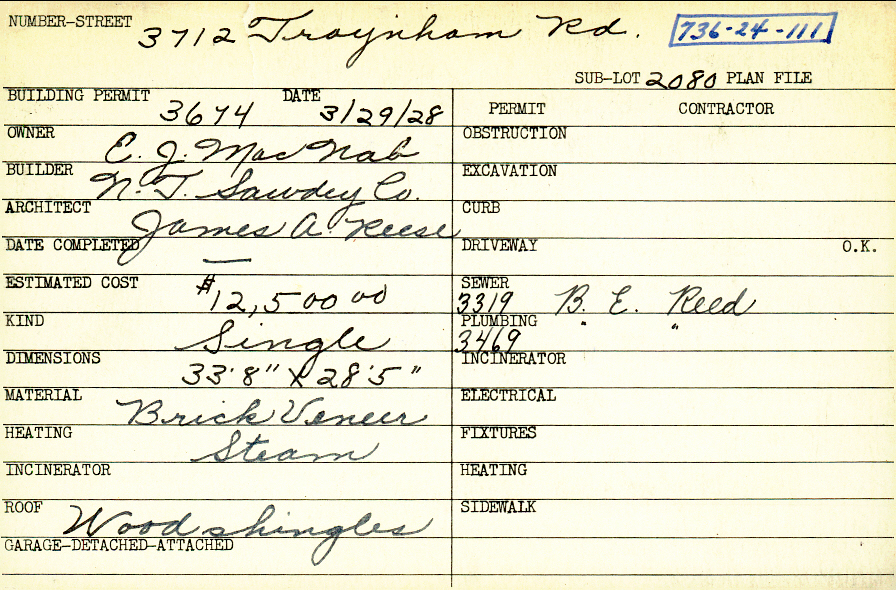 NUMBER-STREET 3712 Traynham Rd. 736-24-111
SUB-LOT 2080 PLAN FILE
BUILDING PERMIT 3674 DATE 3/29/28
PERMIT CONTRACTOR
OWNER E. J. MacNab
OBSTRUCTION
BUILDER N. T. Sawdey Co.
EXCAVATION
ARCHITECT James A. Reese
CURB
DATE COMPLETED —
DRIVEWAY O.K.
ESTIMATED COST $12,500 00
SEWER 3319 B. E. Reed
KIND Single
PLUMBING 3469 " "
DIMENSIONS 33'8" X 28'5"
INCINERATOR
MATERIAL Brick Veneer
ELECTRICAL
HEATING Steam
FIXTURES
INCINERATOR
HEATING
ROOF Wood shingles
SIDEWALK
GARAGE-DETACHED-ATTACHED